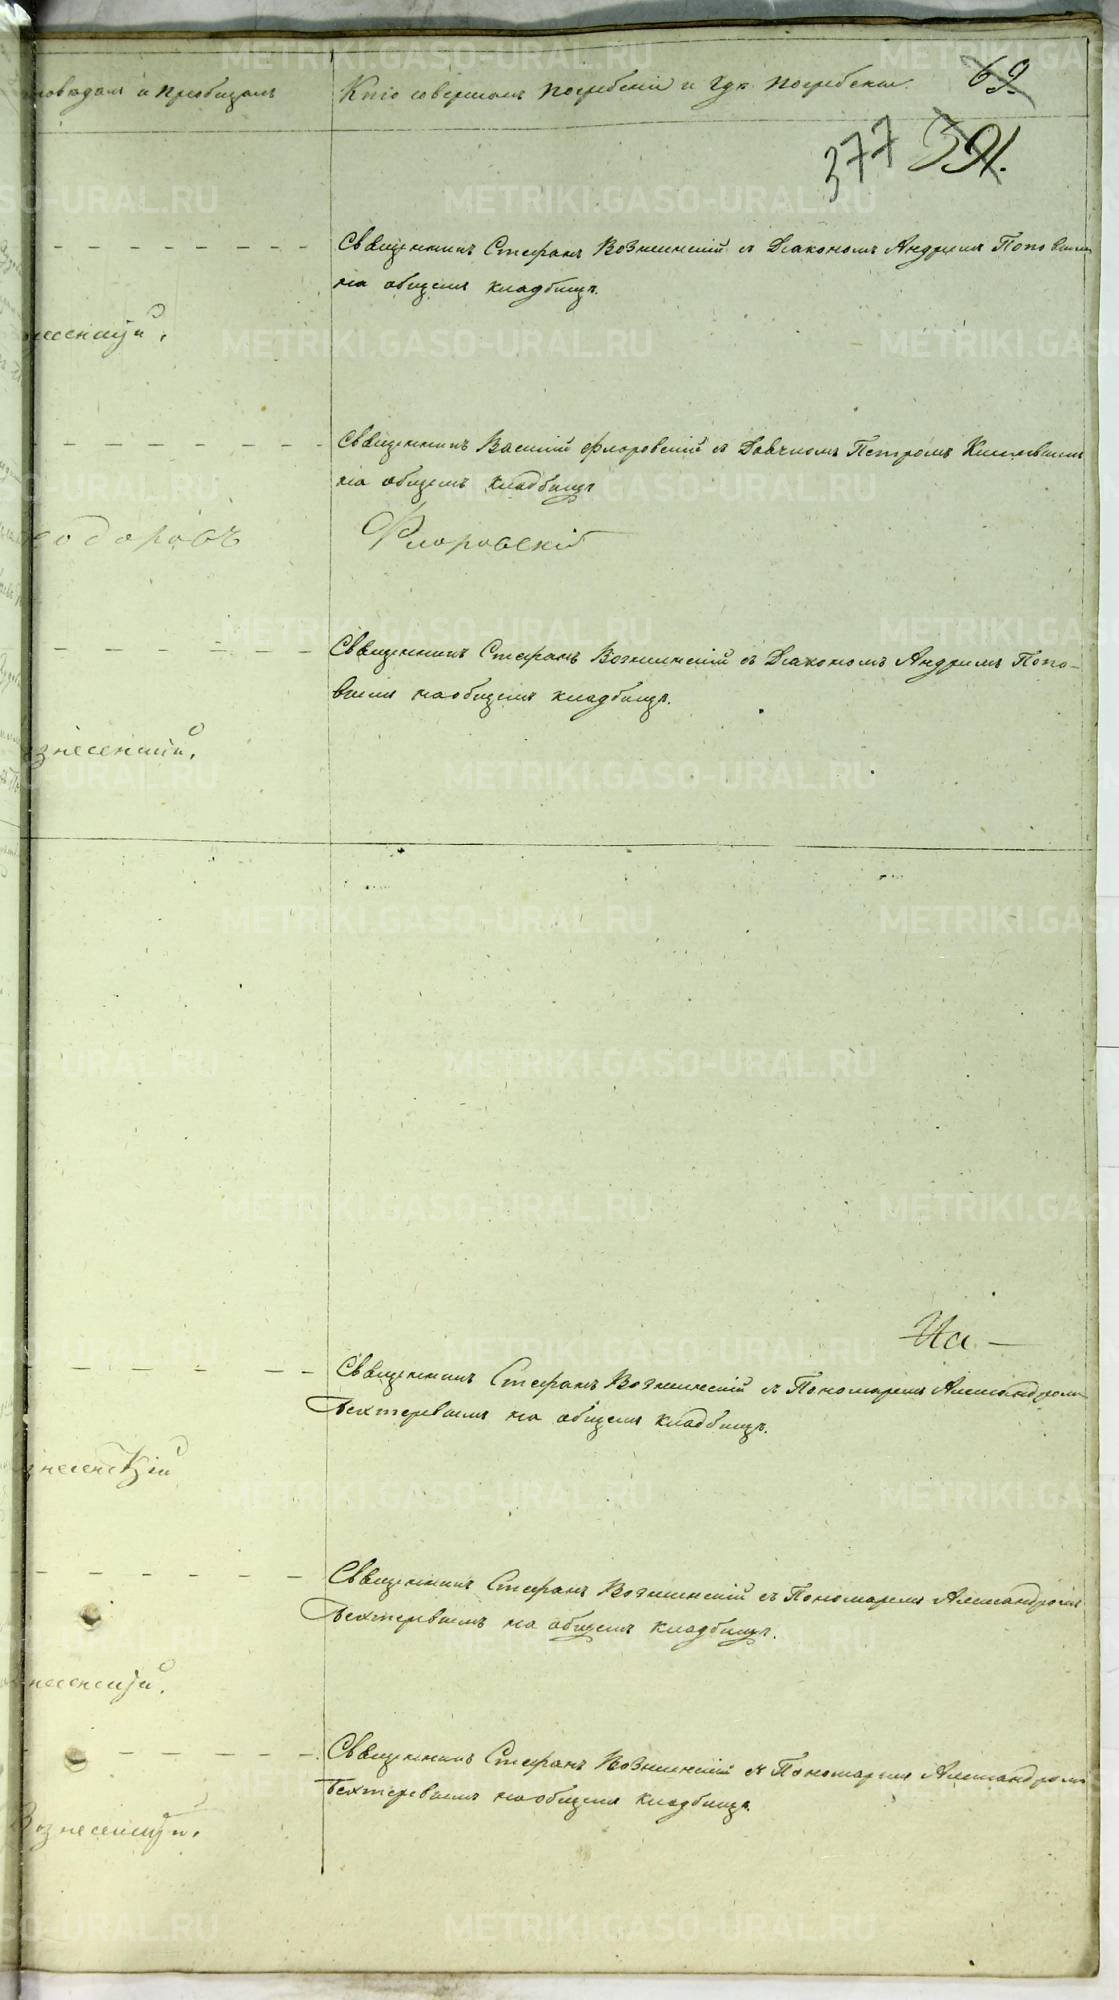 исповѣдалъ и пріобщалъ
Кто совершалъ погребеніе и гдѣ погребены.
69.
377 391.
Священникъ Стефанъ Вознесенскій съ Діакономъ Андреемъ Поповымъ
на общемъ кладбищѣ.
Священникъ Василій Флоровскій съ Дьячкомъ Петромъ
на общемъ кладбищѣ
еодоровъ
Флоровскій
Священникъ Стефанъ Вознесенскій съ Діакономъ Андреемъ Попо-
вымъ на общемъ кладбищѣ.
знесенскій.
На
Священникъ Стефанъ Вознесенскій съ Пономаремъ Александромъ
Бехтеревымъ на общемъ кладбищѣ.
знесенскій
Священникъ Стефанъ Вознесенскій съ Пономаремъ Александромъ
Бехтеревымъ на общемъ кладбищѣ.
несенскій.
Священникъ Стефанъ Вознесенскій съ Пономаремъ Александромъ
Бехтеревымъ на общемъ кладбищѣ.
Вознесенскій.
METRIKI.GASO-URAL.RU